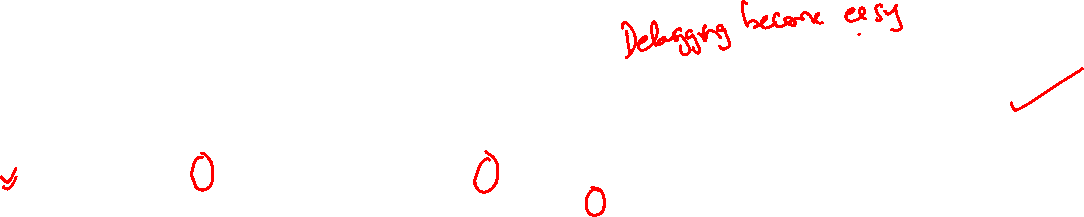 Debugging become easy
0 0
0